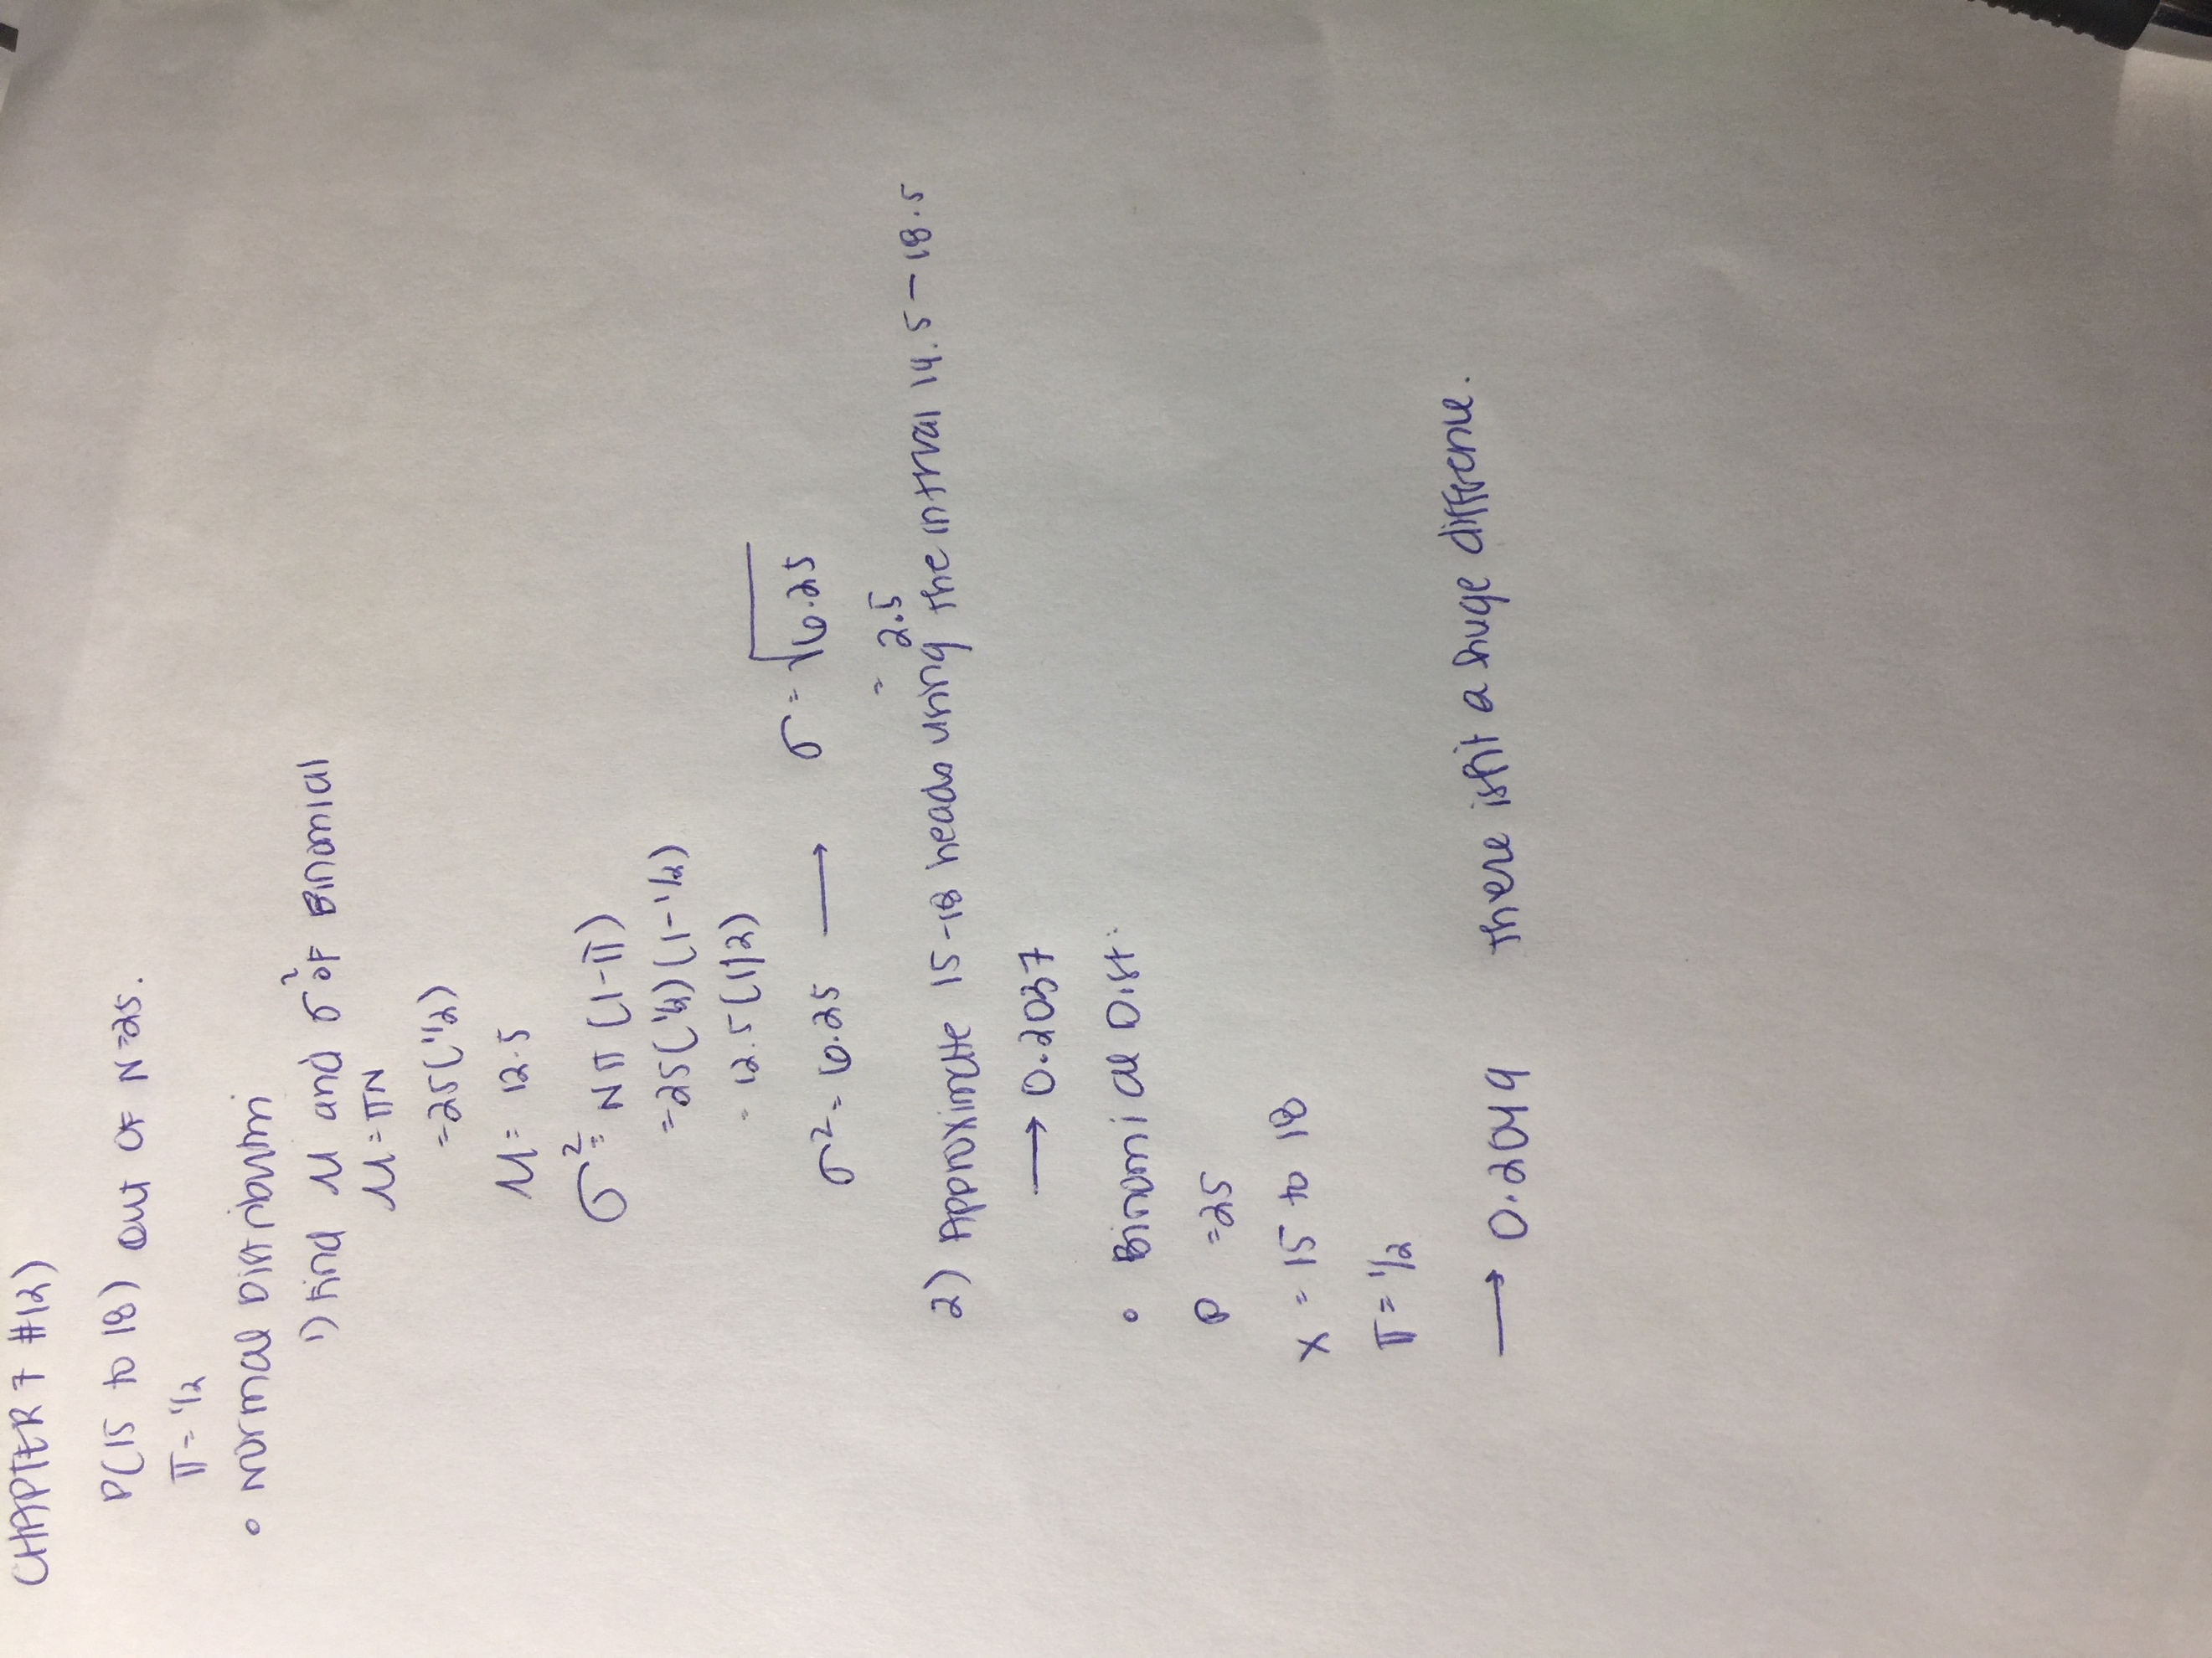 CHAPTER 7 #12)
P(15 to 18) out of N=25.
π = 1/2
• Normal Distribution
1) Find μ and σ² of Binomial
μ = πN
= 25(1/2)
μ = 12.5
σ² = Nπ(1-π)
= 25(1/2)(1-1/2)
= 12.5(1/2)
σ² = 6.25 → σ = √6.25
= 2.5
2) Approximate 15-18 heads using the intrval 14.5-18.5
→ 0.2037
• Binomial Dist.
P = 25
X = 15 to 18
π = 1/2
→ 0.2049 there isn't a huge difference.